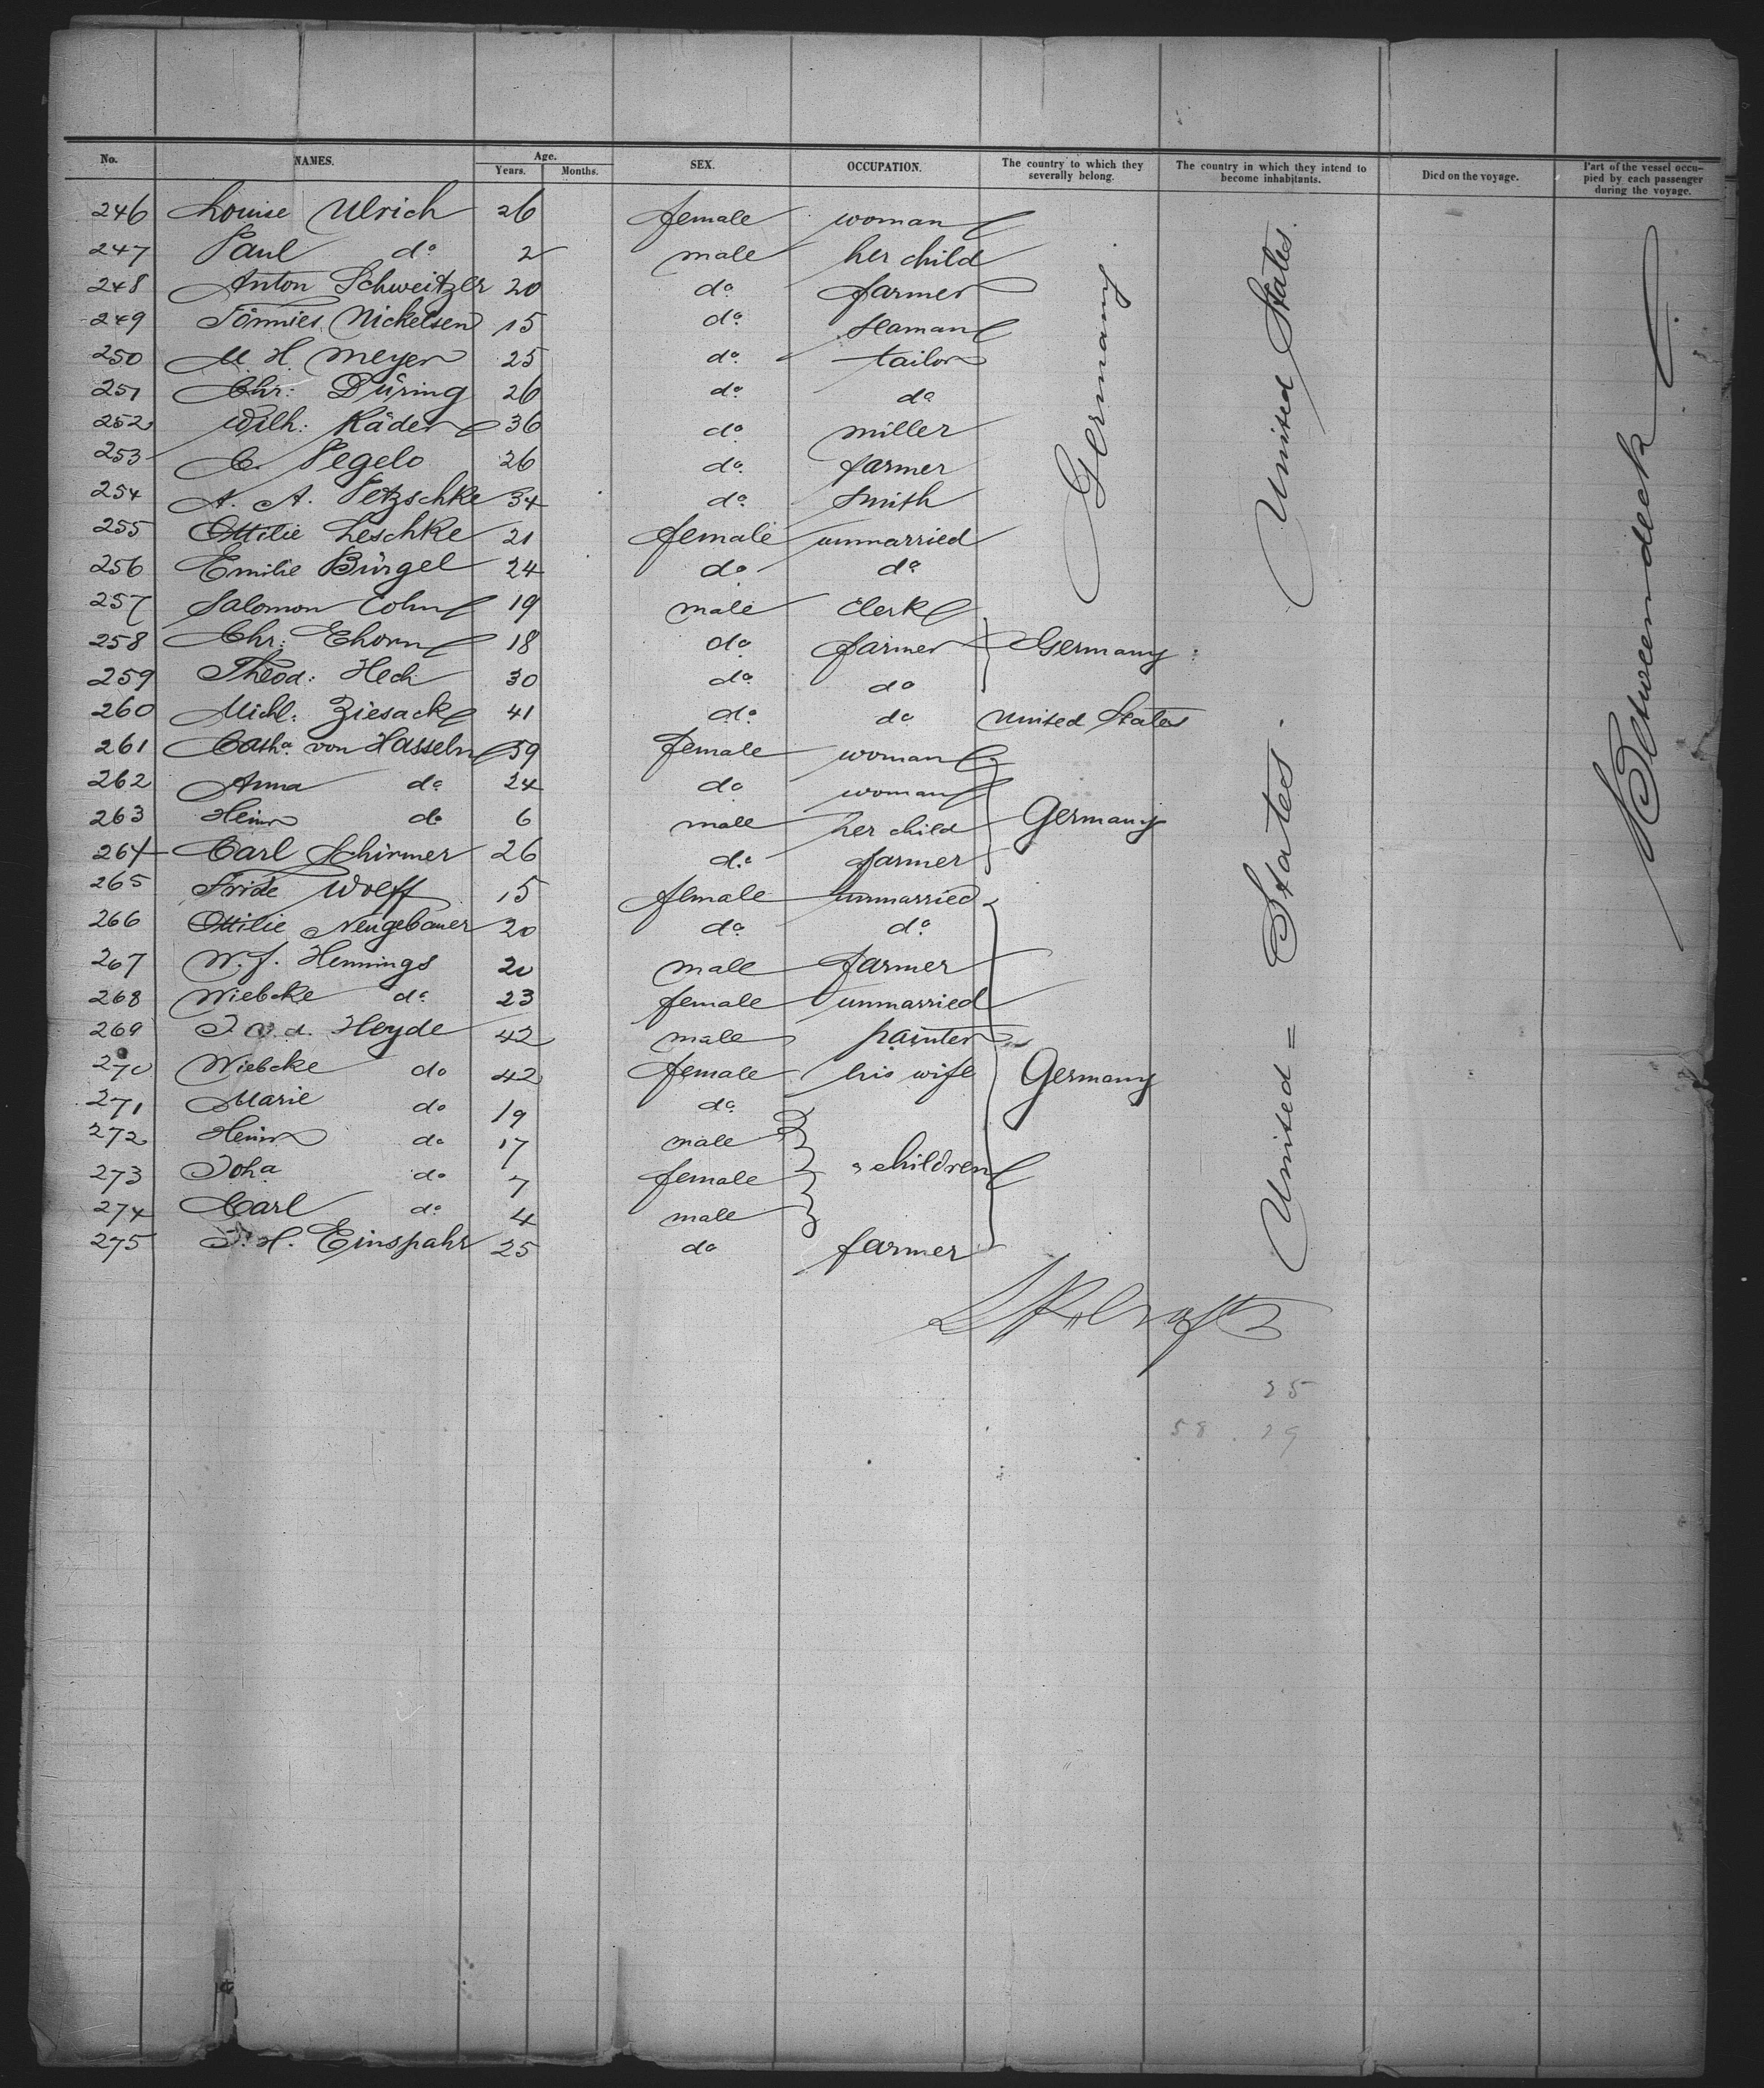 No. NAMES. Age. Years. Months. SEX. OCCUPATION. The country to which they severally belong. The country in which they intend to become inhabitants. Died on the voyage. Part of the vessel occupied by each passenger during the voyage.
246 Louise Ulrich 26 female woman
247 Paul do 2 male her child
248 Anton Schweitzer 20 do farmer
249 Tönnies Nickelsen 15 do seaman
250 M. H. Meyer 25 do tailor
251 Chr: Düring 26 do do
252 Wilh: Räder 36 do miller
253 C. Vegelo 26 do farmer
254 A. A. Petzschke 34 do Smith
255 Ottilie Leschke 21 female unmarried
256 Emilie Bürgel 24 do do
257 Salomon Cohn 19 male Clerk
258 Chr: Ehorn 18 do farmer Germany
259 Theod: Hech 30 do do
260 Michl: Ziesack 41 do do United States
261 Catha von Hasseln 59 female woman
262 Anna do 24 do woman
263 Heinr do 6 male her child Germany
264 Carl Schirmer 26 do farmer
265 Fride Wolff 15 female unmarried
266 Ottilie Neugebauer 20 do do
267 W. J. Hennings 20 male farmer
268 Wiebcke do 23 female unmarried
269 J v. d. Heyde 42 male painter
270 Wiebcke do 42 female his wife Germany
271 Marie do 19 do
272 Heinr do 17 male
273 Joha do 7 female children
274 Carl do 4 male
275 J. H. Einspahr 25 do farmer
Germany.
United States.
United = States.
Betweendeck
25
58 . 29